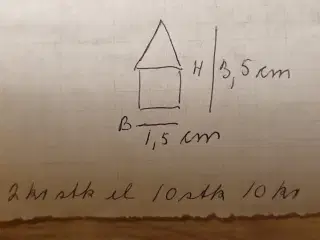 H 3,5 cm
B
1,5 cm
2 kr stk el 10 stk 10 kr